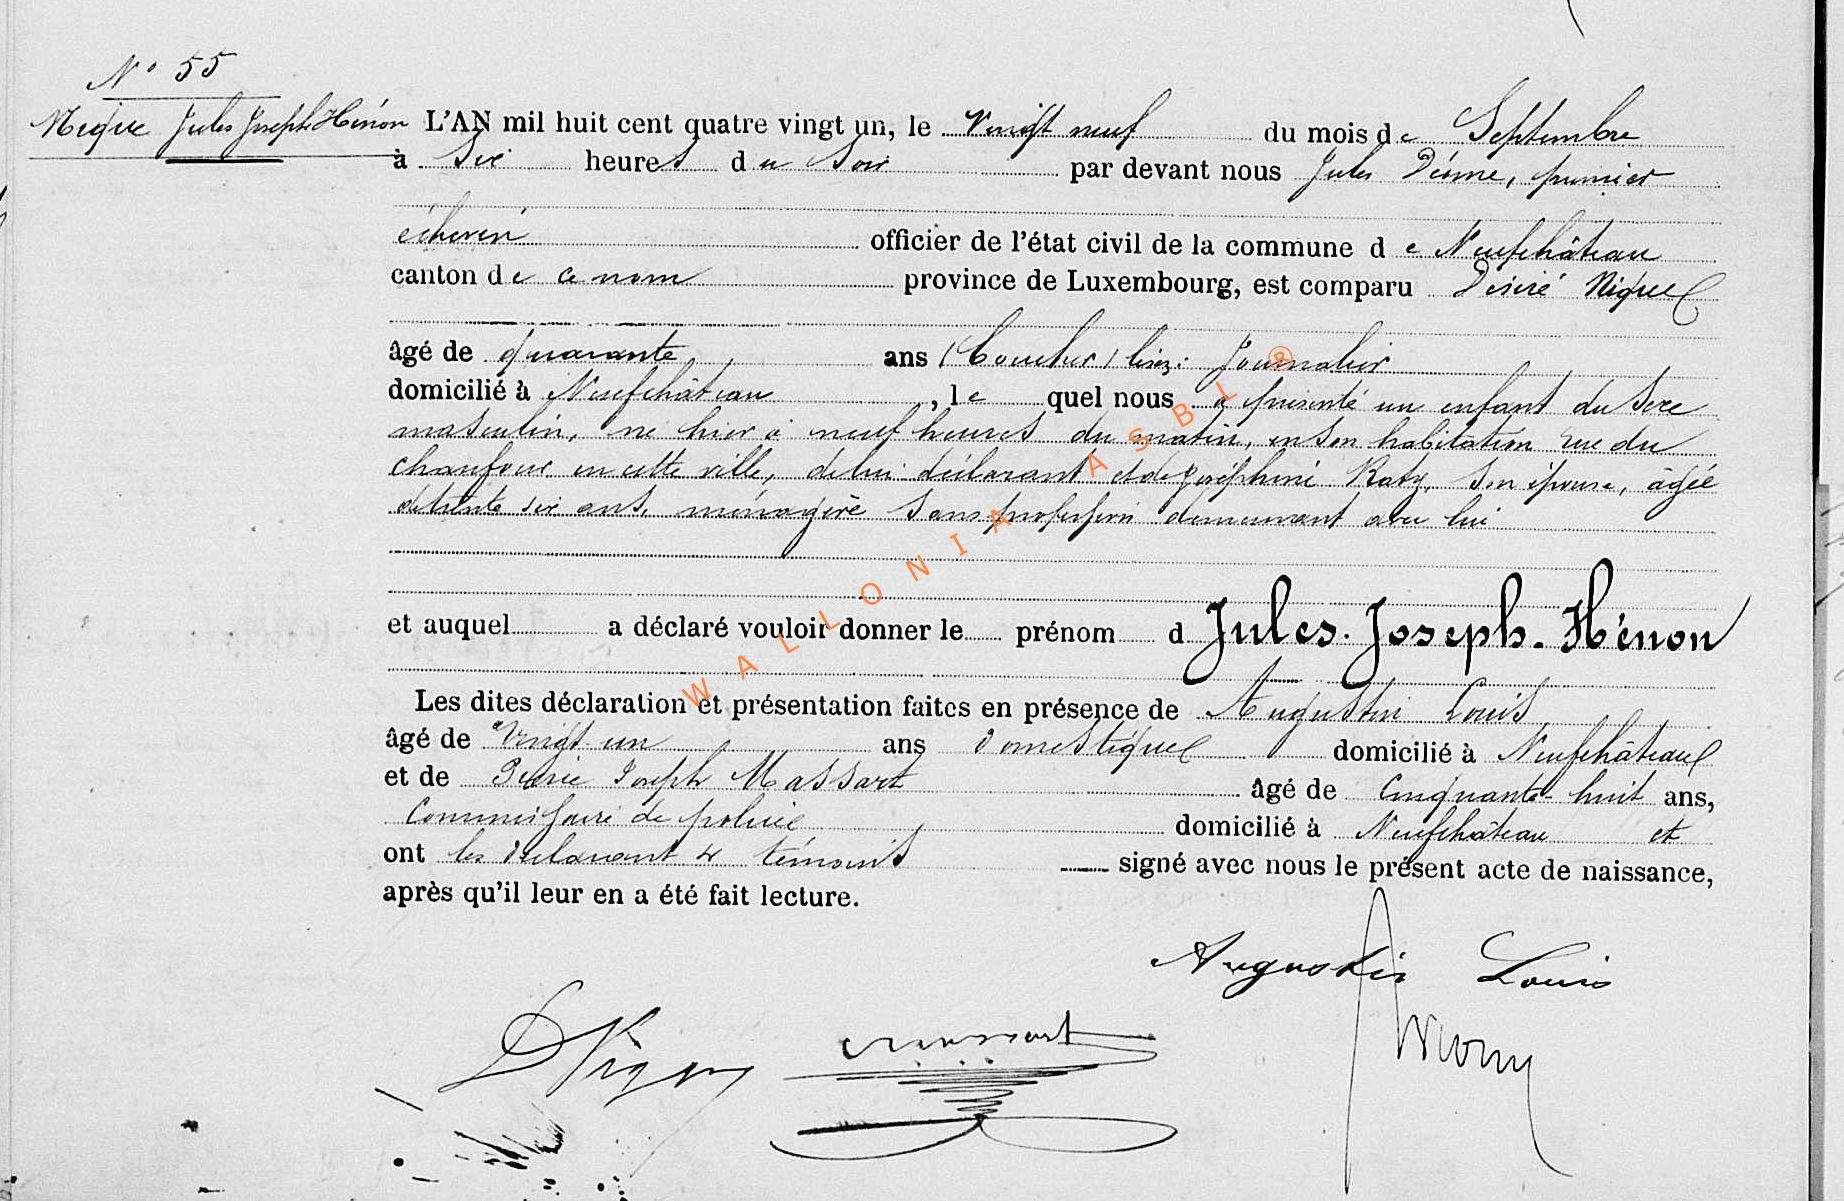 N° 55
Nique Jules Joseph Hénon
L'AN mil huit cent quatre vingt un, le vingt neuf du mois de Septembre
à Six heures du Soir par devant nous Jules premier
échevin officier de l'état civil de la commune de Neufchâteau
canton de ce nom province de Luxembourg, est comparu Désiré Nique
âgé de quarante ans (Boucher) lisez: Journalier
domicilié à Neufchâteau, lequel nous a présenté un enfant du Sexe
masculin, né hier à neuf heures du matin, en son habitation rue du
chaufour en cette ville, de lui déclarant et de Joséphine Raty, son épouse, âgée
de trente six ans, ménagère sans profession demeurant avec lui
et auquel a déclaré vouloir donner le prénom d Jules. Joseph. Hénon
Les dites déclaration et présentation faites en présence de Augustin Louis,
âgé de vingt un ans domestique domicilié à Neufchâteau
et de Joseph Massart âgé de Cinquante-huit ans,
Commissaire de police, domicilié à Neufchâteau et
ont les déclarant & témoins signé avec nous le présent acte de naissance,
après qu'il leur en a été fait lecture.
Augustin Louis
DNique
Massart
WALLONIA ASBL ®